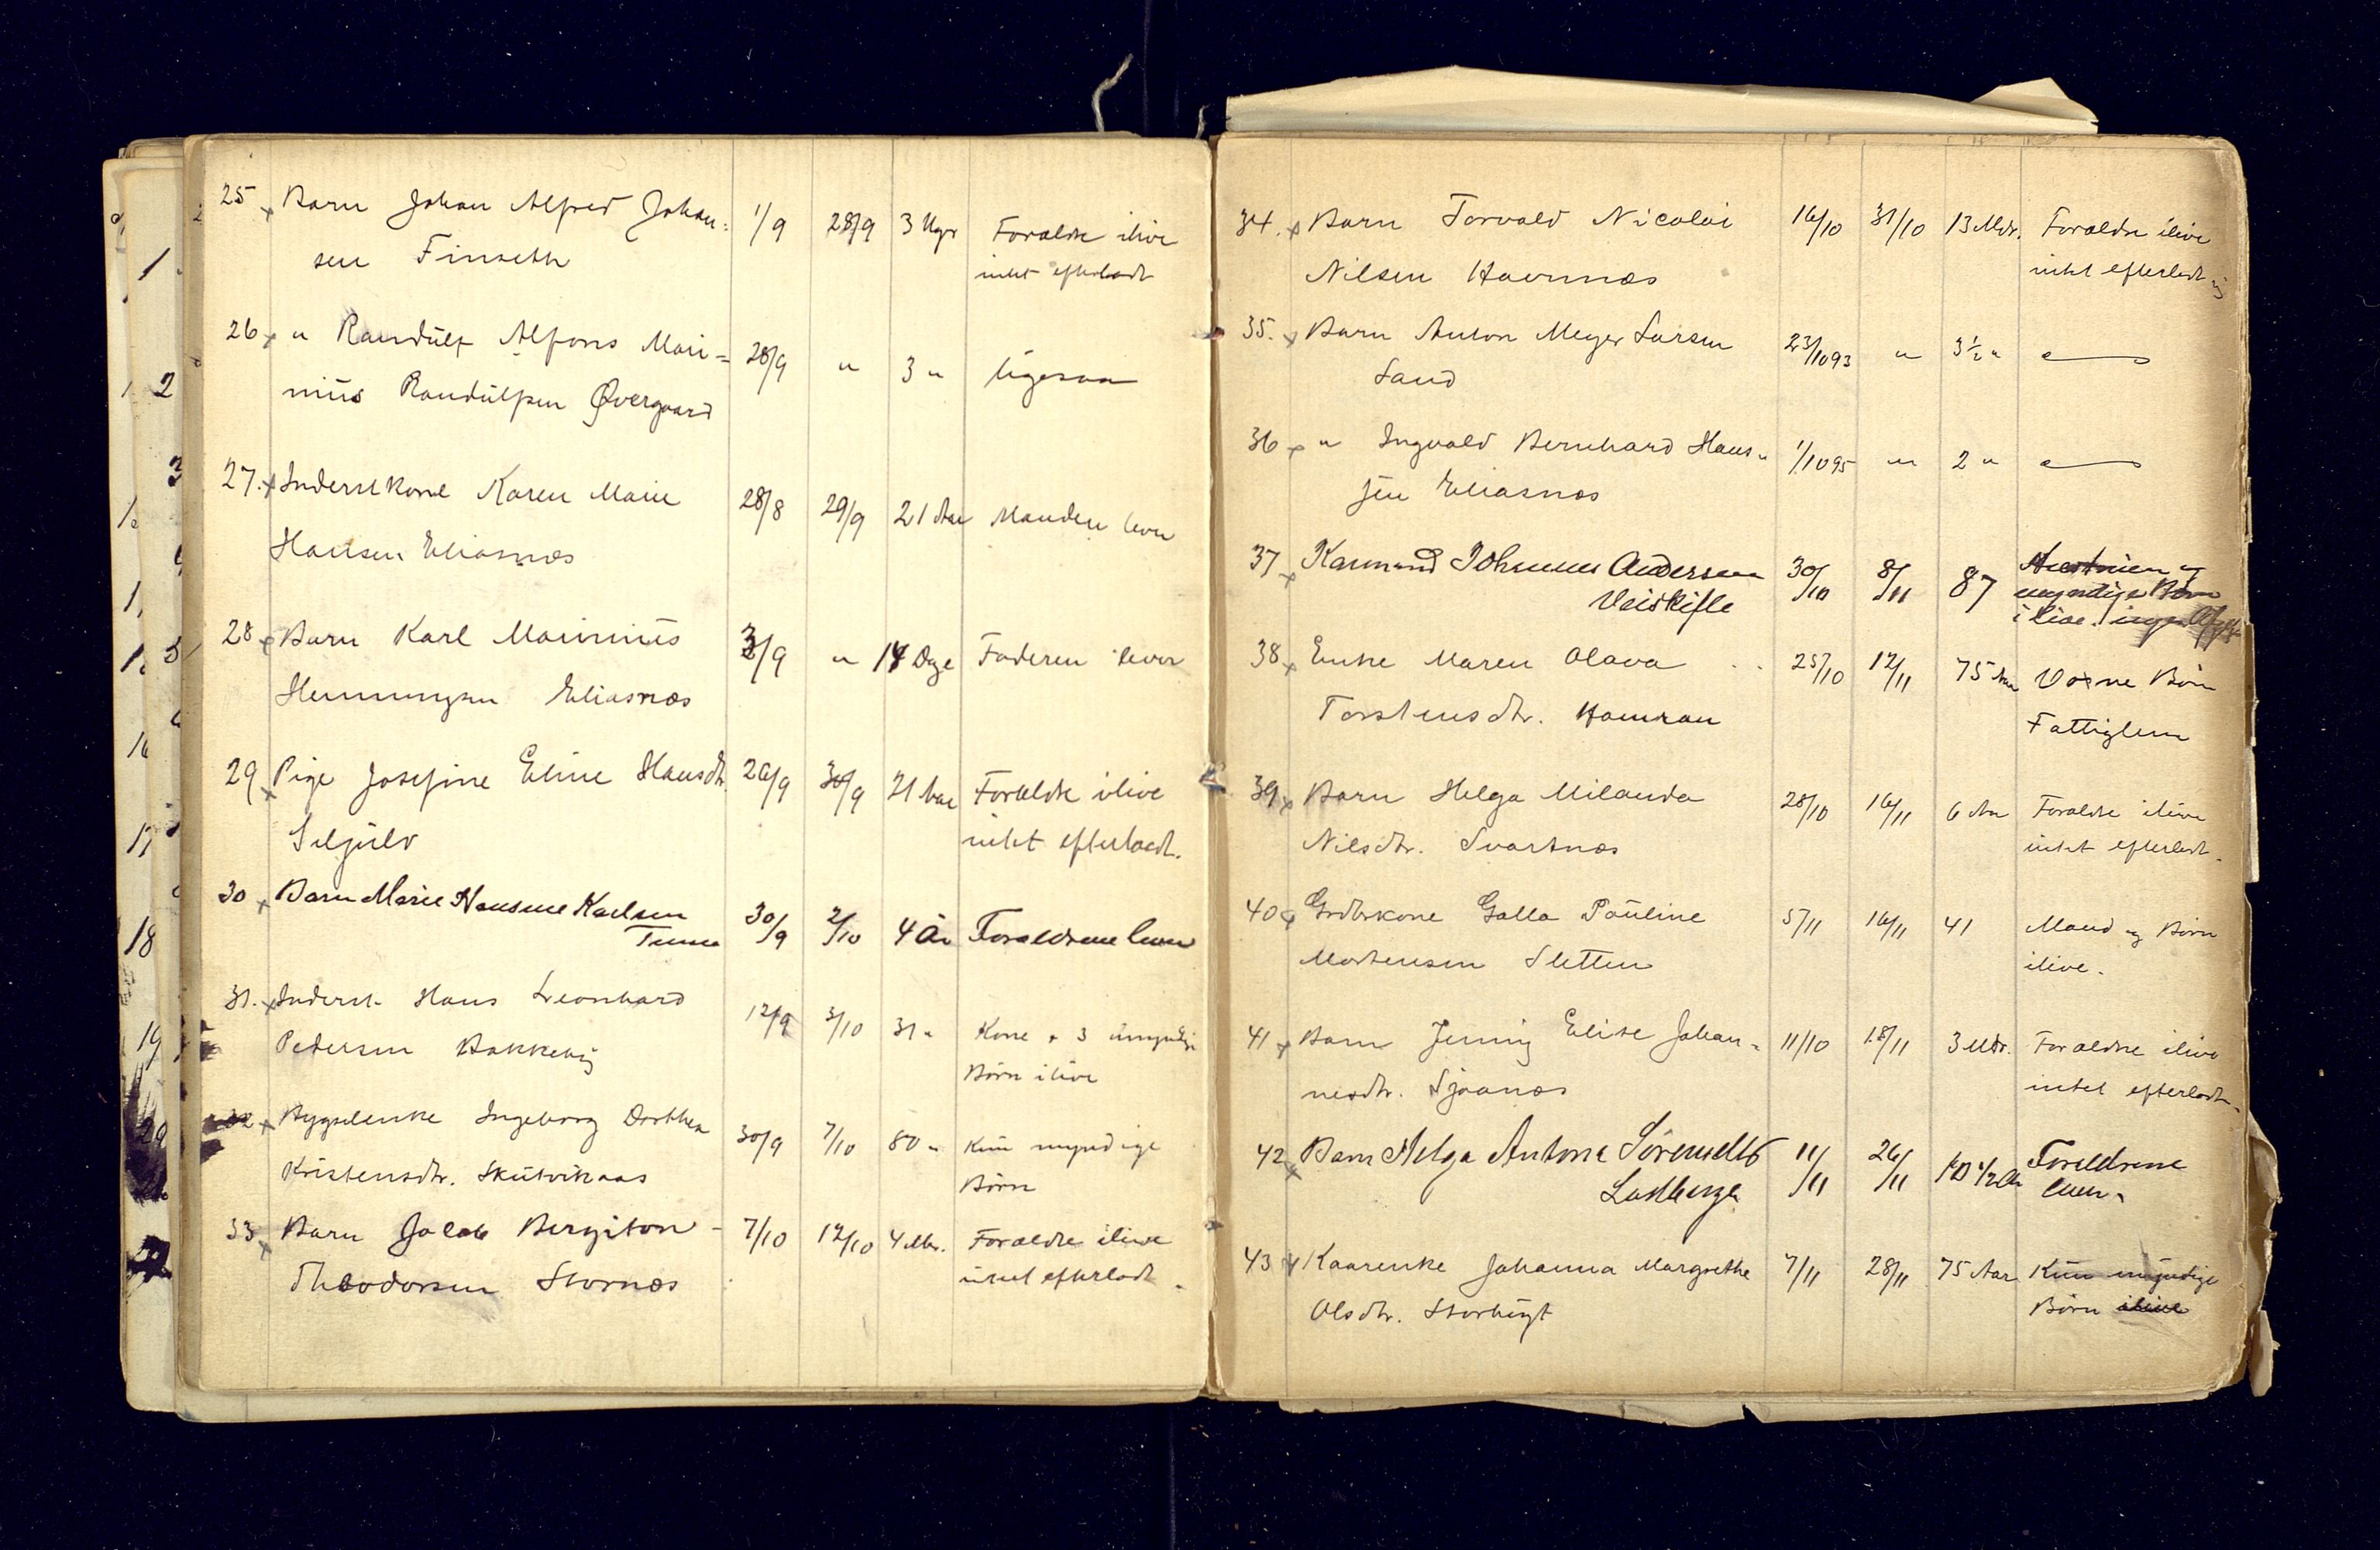 25 x Barn Johan Alfred Johan= 1/9 28/9 3 Uger Forældre ilive
sen Finseth intet efterladt
26 x " Randulf Alfons Mari= 28/9 " 3 " ligesaa
nius Randulfsen Øvergaard
27. x Inderstkone Karen Marie 28/8 29/9 21 Aar Manden lever
Hansen Eliasnæs
28 x Barn Karl Marinius 3/9 " 14 Dge Faderen lever
Henningsen Eliasnæs
29 x Pige Josefine Eline Hansdtr. 26/9 30/9 21 Aar Forældre ilive
Seljulv intet efterladt.
30 x Barn Marie Hansine Karlsen 30/9 2/10 4 År Forældrene lever
31. x Inderst. Hans Leonhard 12/9 3/10 31 " Kone + 3 umyndige
Pedersen Bakkeby Børn ilive
32 x Bygselenke Ingeborg Dorthea 30/9 7/10 80 " Kun myndige
Kristensdtr. Skutvikaas Børn
33 x Barn Jacob Bergiton 7/10 12/10 4 Mdr. Forældre ilive
Theodorsen Stornæs intet efterladt.
34. x Barn Torvald Nicolai 16/10 31/10 13 Mdr. Forældre ilive
Nilsen Havnnæs intet efterladt
35. x Barn Anton Meyer Larsen 23/10 93 " 3 1/2 "
Sand
36 x " Ingvald Bernhard Han= 1/10 95 " 2 "
sen Eliasnæs
37 x Karmand Johannes Andersen 30/10 8/11 87 og
Veidskifte myndige Børn
ilive. ingen
38 x Enke Maren Olava 25/10 12/11 75 Aar Voxne Børn
Torstensdtr. Hamran Fattiglem
39 x Barn Helga Milanda 28/10 16/11 6 Aar Forældre ilive
Nilsdtr. Svartnæs intet efterladt.
40 x Grdbrkone Galla Pauline 5/11 16/11 41 Mand og Børn
Mortensen Sletten ilive.
41 x Barn Jenny Elise Johan= 11/10 18/11 3 Mdr. Forældre ilive
nesdtr. Sjaanæs intet efterladt.
42 x Barn Helga Antona Sörensdtr 11/11 26/11 10 1/2 År Forældrene
lever.
43 x Kaarenke Johanna Margrethe 7/11 28/11 75 Aar Kun myndige
Olsdtr. Storbugt Børn ilive
1
2
3
18
19
20